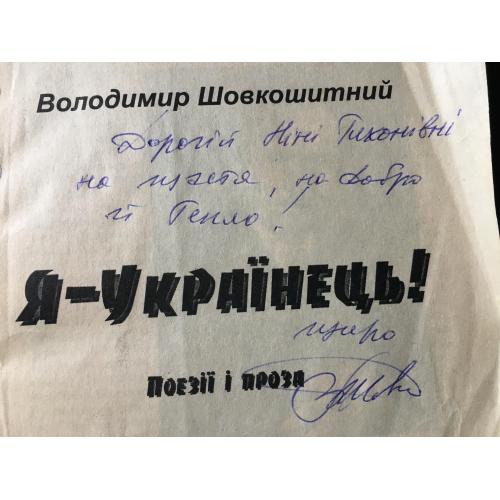 Володимир Шовкошитний
Дорогій Ніні Тихонівні
на щастя, на добро
й тепло!
Я-УКРАЇНЕЦЬ!
щиро
Поезії і проза